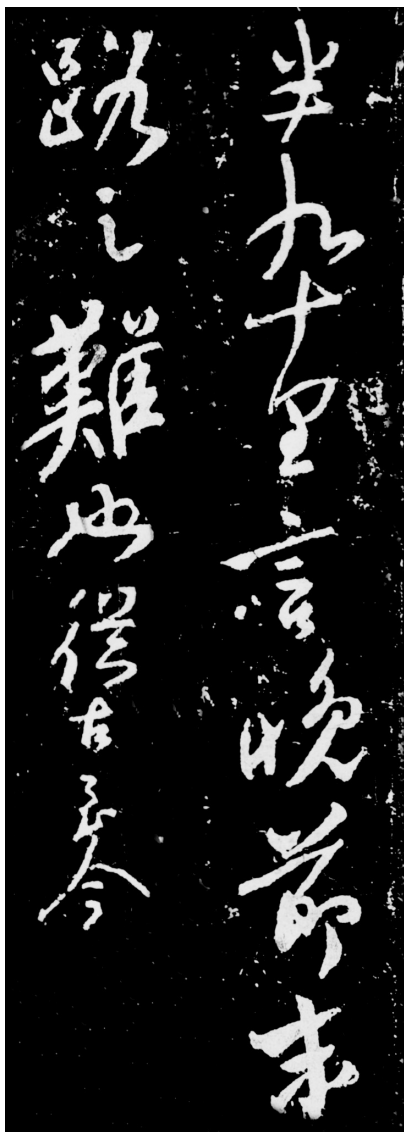 半九十里言晚節末
路之難也從古至今